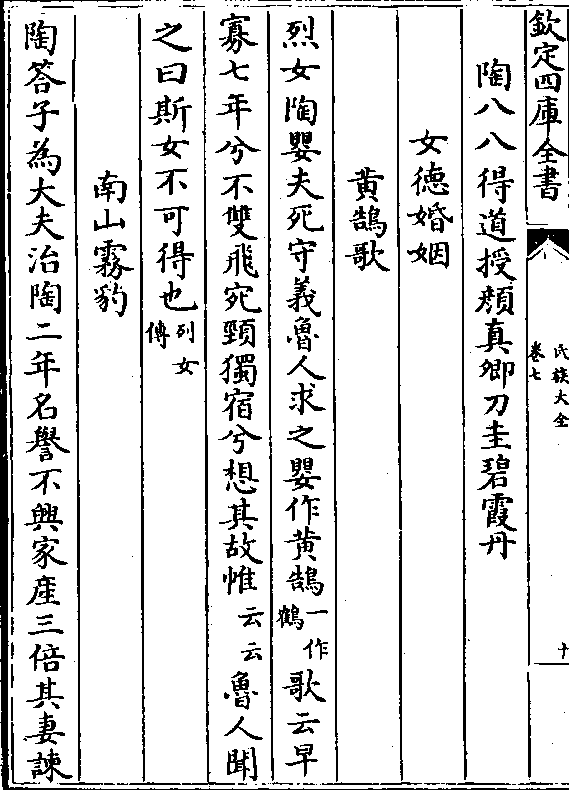 欽定四庫全書
氏族大全
卷七
十
陶八八得道授顏真卿刀圭碧霞丹
女德婚姻
黄鵠歌
烈女陶嬰夫死守義魯人求之嬰作黄鵠一作鶴歌云早
寡七年兮不雙飛宛頸獨宿兮想其故惟云云魯人聞
之曰斯女不可得也列女傳
南山霧豹
陶答子為大夫治陶二年名譽不興家產三倍其妻諫